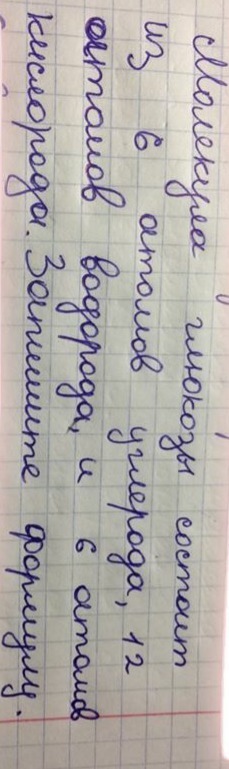 Молекула глюкозы состоит
из 6 атомов углерода, 12
атомов водорода, и 6 атомов
кислорода. Запишите формулу.